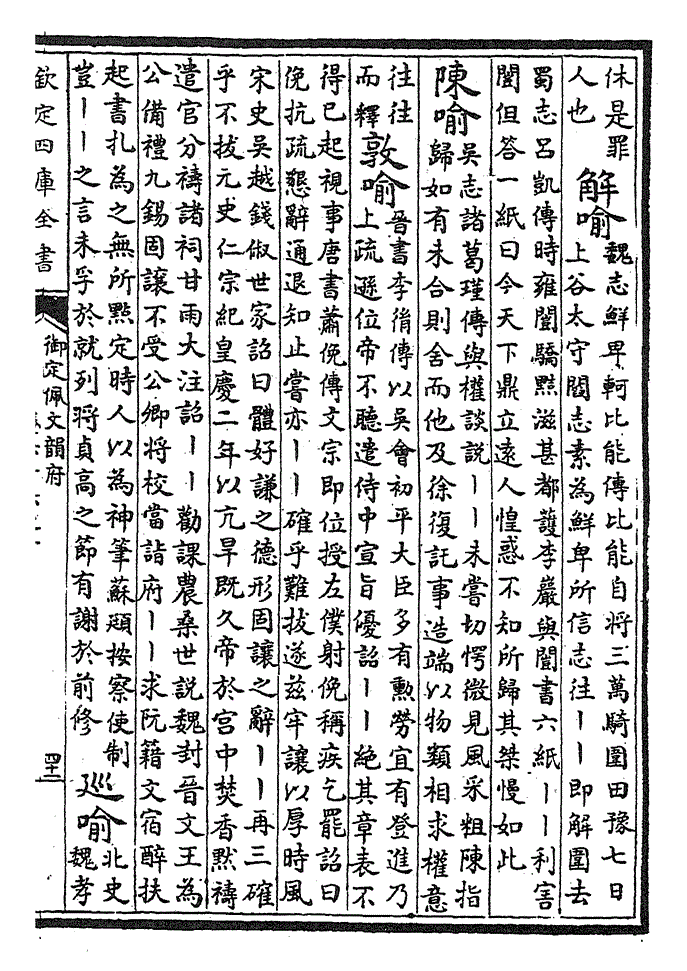 休是罪
人也
解喻
魏志鮮卑軻比能傳比能自將三萬騎圍田豫七日
上谷太守閻志素為鮮卑所信志往丨丨即解圍去
蜀志呂凱傳時雍闓驕黠滋甚都護李嚴與闓書六紙丨丨利害
闓但答一紙曰今天下鼎立遠人惶惑不知所歸其桀慢如此
陳喻
吳志諸葛瑾傳與權談說丨丨未嘗切愕微見風采粗陳指
歸如有未合則舍而他及徐復託事造端以物類相求權意
往往
而釋
敦喻
晉書李㣧傳以吳會初平大臣多有勲勞宜有登進乃
上疏遜位帝不聽遣侍中宣旨優詔丨丨絶其章表不
得已起視事唐書蕭俛傳文宗即位授左僕射俛稱疾乞罷詔曰
俛抗疏懇辭通退知止嘗亦丨丨確乎難拔遂兹牢讓以厚時風
宋史吳越錢俶世家詔曰體好謙之德形固讓之辭丨丨再三確
乎不拔元史仁宗紀皇慶二年以亢旱既久帝於宮中焚香黙禱
遣官分禱諸祠甘雨大注詔丨丨勸課農桑世說魏封晉文王為
公備禮九錫固讓不受公卿將校當詣府丨丨求阮籍文宿醉扶
起書札為之無所㸃定時人以為神筆蘇頲按察使制
豈丨丨之言未孚於就列將貞高之節有謝於前修
巡喻
北史
魏孝
欽定四庫全書
御定佩文韻府
四十二